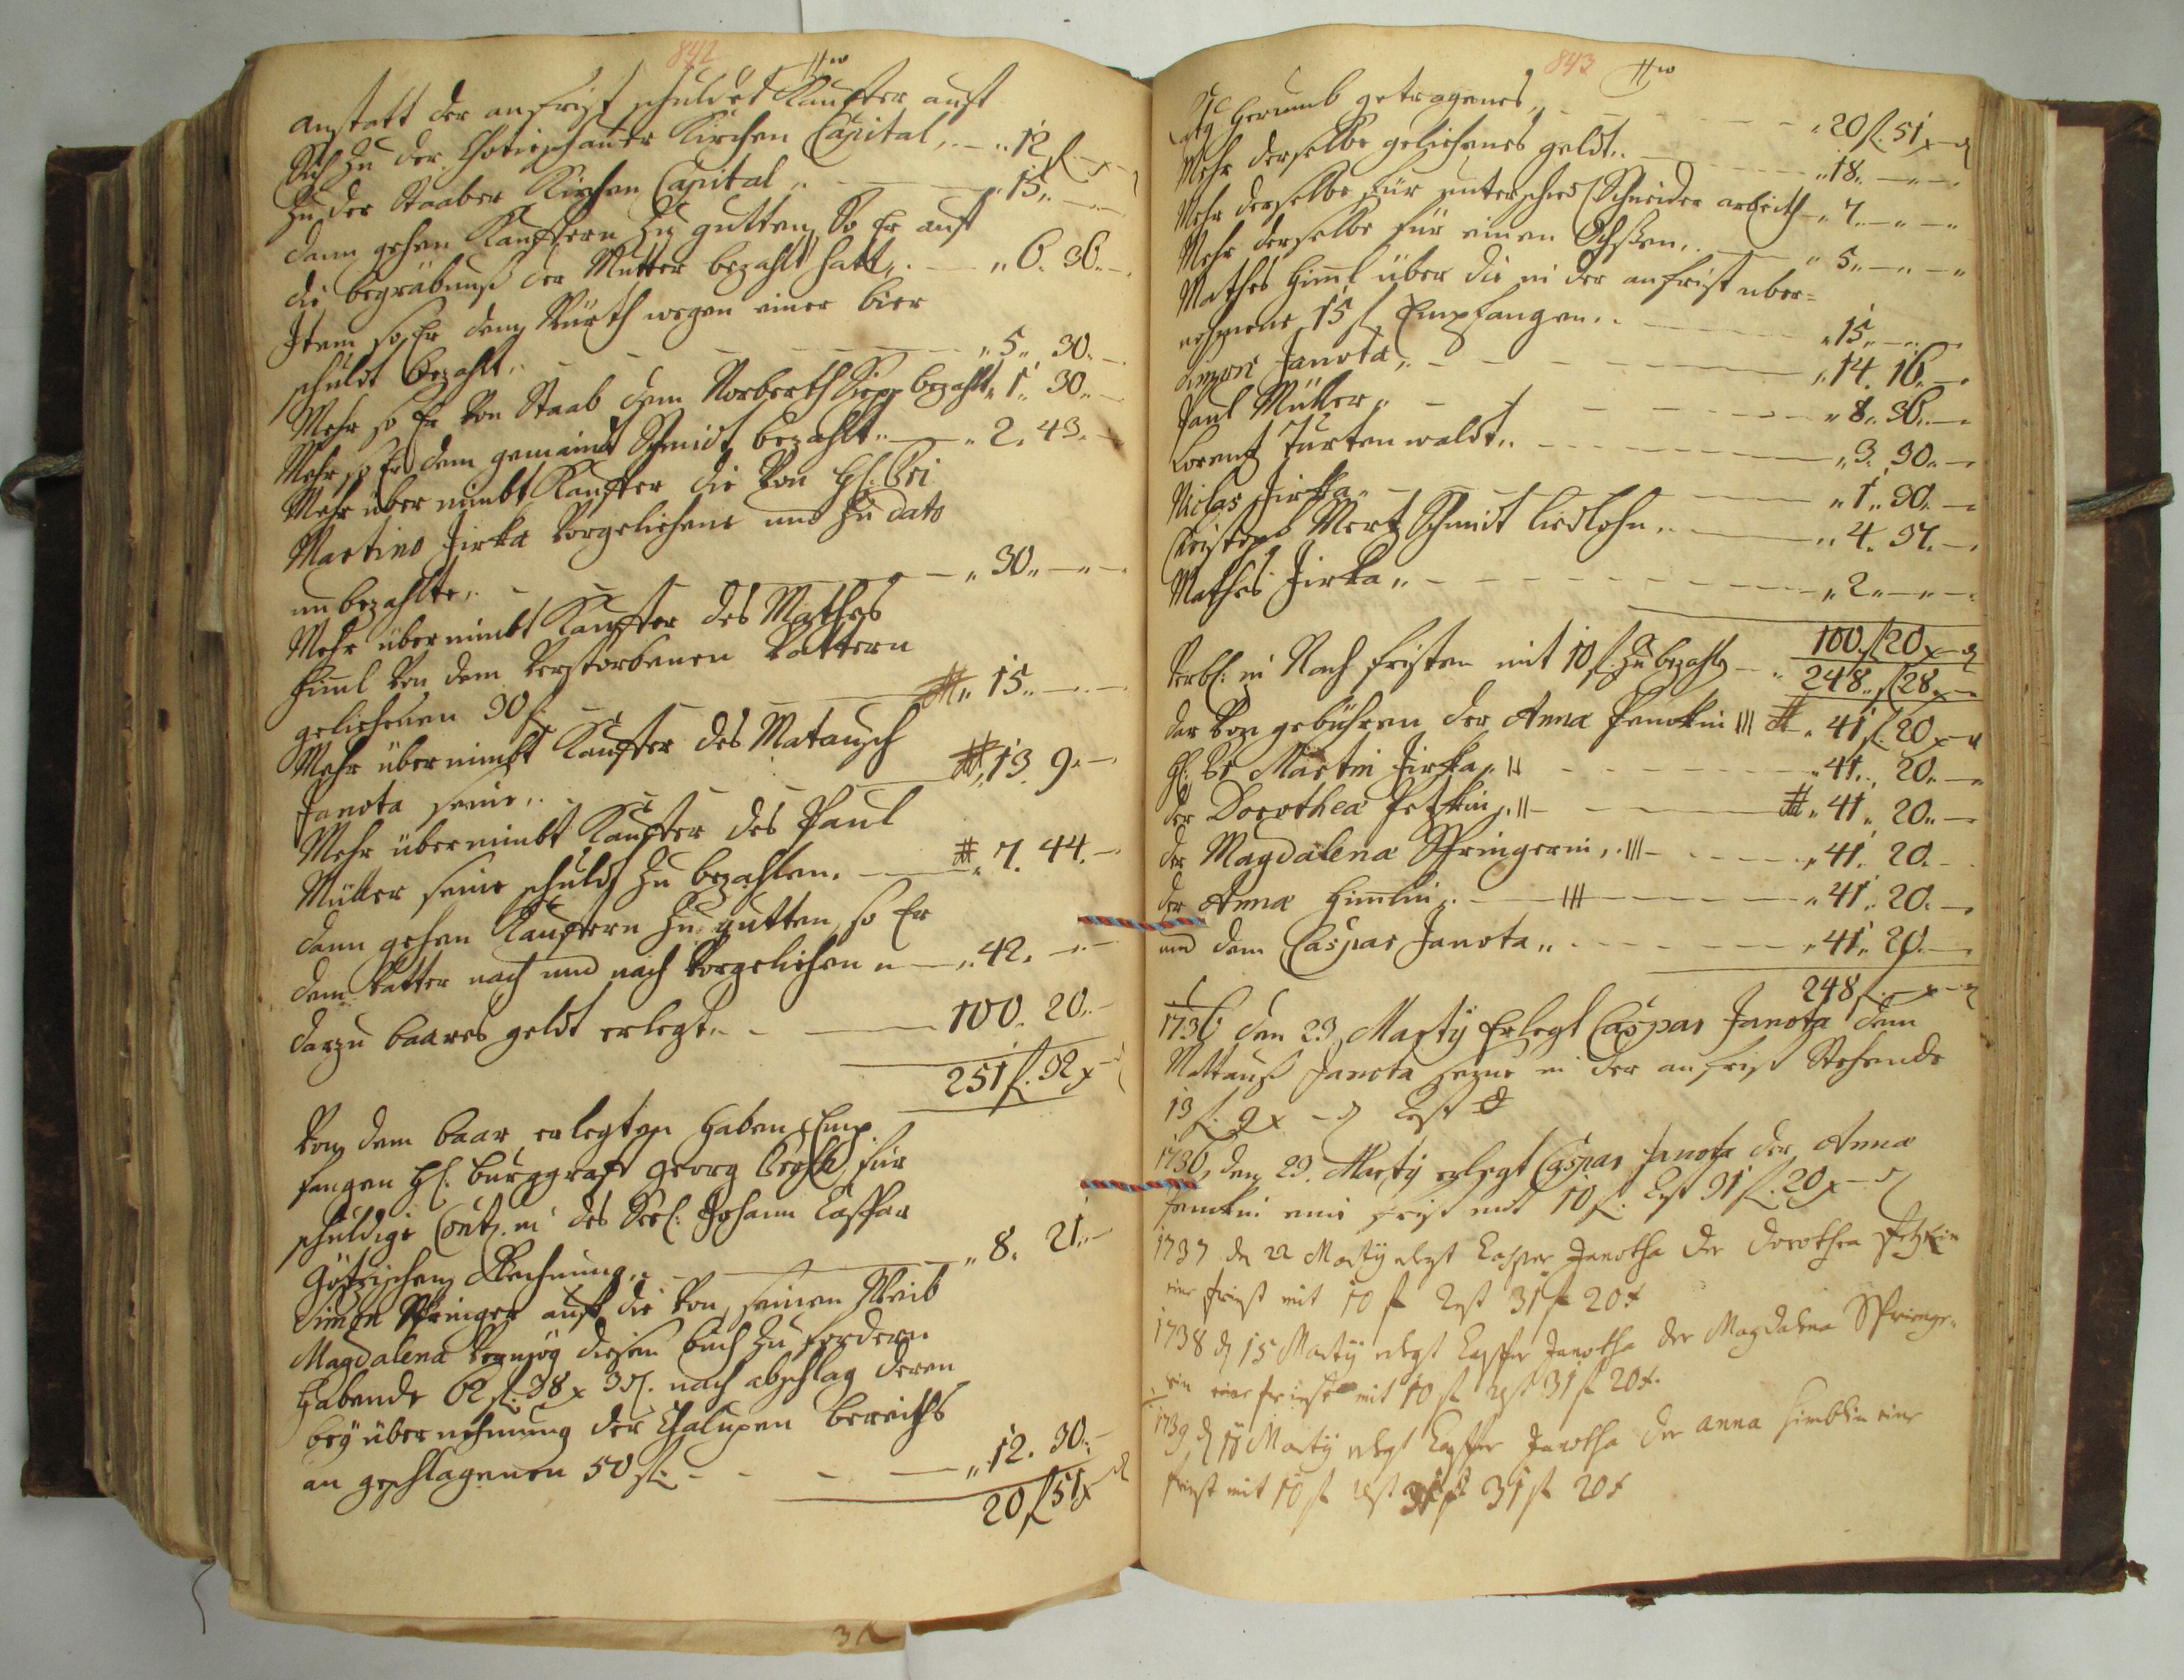 842
anstatt der anfrist schuldet Kauffer auff
Sich Zu der Chotieschauer Kirchen Capital,. — „12 f — x —
Zu der Staaber Kirchen Capital,. — „15„ —
dann gehen Kauffern Zu gutten, So Er auff
die begräbnuß der Mutter bezahlt hatt,. — „6. 36. —
Item so Er dem Würth wegen einer bier
schuldt bezahlt,. — „5„ 30. —
Mehr so Er Von Staab dem Norberth bezahlt „1„ 30„ —
Mehr so Er dem gemaindt Schmidt bezahlt„ — „2. 43. —
Mehr über nimbt Kauffer die Von
Martino Jirka Vorgeliehene und Zu dato
unbezahlte,. — „30„ — „ —
Mehr übernimbt Kauffer des Mathes
Himl Von dem Verstorbenen Vattern
geliehenen 30 f. — „15„ —
Mehr übernimbt Kauffer des Matausch
Janota seine,. — „13. 9„ —
Mehr übernimbt Kauffer des Paul
Müller seine schuldt Zu bezahlen. — „7. 44. —
dann gehen Kauffern Zu gutten, so Er
dem Vatter nach und nach Vorgeliehen „ — „42. —
darzu baares geldt erlegt„ — 100. 20„ —
251 f. 32 x —
Von dem baar erlegten haben Emp
fangen H: burggraff Georg für
schuldige Cont: in des Seel: Johann Casspar
Götzischen Rechnung,. — „8. 21„ —
Simon Springer auff die Von seinen Weib
Magdalena Vermög diesem buch Zu fordern
habende 62 f. 38 x 3 d. nach abschlag deren
bey übernehmung der Chalupen bereiths
an geschlagenen 50 f: — „12. 30„ —
20 f 51 x — d
843
herumb getragenes,. — „20 f. 51 x — d
Mehr derselbe geliehenes geldt„ — „18„ —
Mehr derselbe für unterschied Schneider arbeith — „7„ — „ —
Mehr derselbe für einen Ochssen,. — „5„ — „ —
Mathes Himl über die in der anfrist über=
nohmene 15 f Empfangen„ — „15„ —
Simon Janota„ — „14. 16„ —
Paul Müller„ — „8„ 36„ —
Lorentz Turtenwaldt„ — „3. 30„ —
Niclas Jirka„ — „1„ 30„ —
Christoph Mertz Schmidt liedlohn„ — „4„ 37. —
Mathes Jirka„ — „2„ — „ —
100 f 20 x — d
Verbl: in Nach fristen mit 10 f. Zu bezahlen — 248„ f 28 x —
dar Von gebühren der Anna III — „41 f. 20 x — d
Martin Jirka„ II — „41„ 20„ —
der Dorothea Petzkin,. II — „41„ 20„ —
der Magdalena Springerin,. III — „41„ 20. —
der Anna Himlin,. — III — „41„ 20. —
und dem Caspar Janota„ — „41„ 20. —
248 f — x —
1736 den 23 Marty Erlegt Caspar Janota dem
Mattauß Janota seine in der anfrist Stehende
13 f. 9 x — d Rest
1736 den 23. Marty erlegt Caspar Janota der Anna
eine frist mit 10 f. Rest 31 f. 20 x — d
1737 de 22 Marty erlegt Casper Janotha der Dorothea Petzkin
eine frist mit 10 f Rest 31 f 20 x
1738 d 15 Marty erlegt Casper Janotha der Magdalena Springe„
rin eine frist mit 10 f Rest 31 f 20 x.
1739 d 18 Marty erlegt Casper Janotha der anna Himblin eine
frist mit 10 f Rest 31 f 20 x